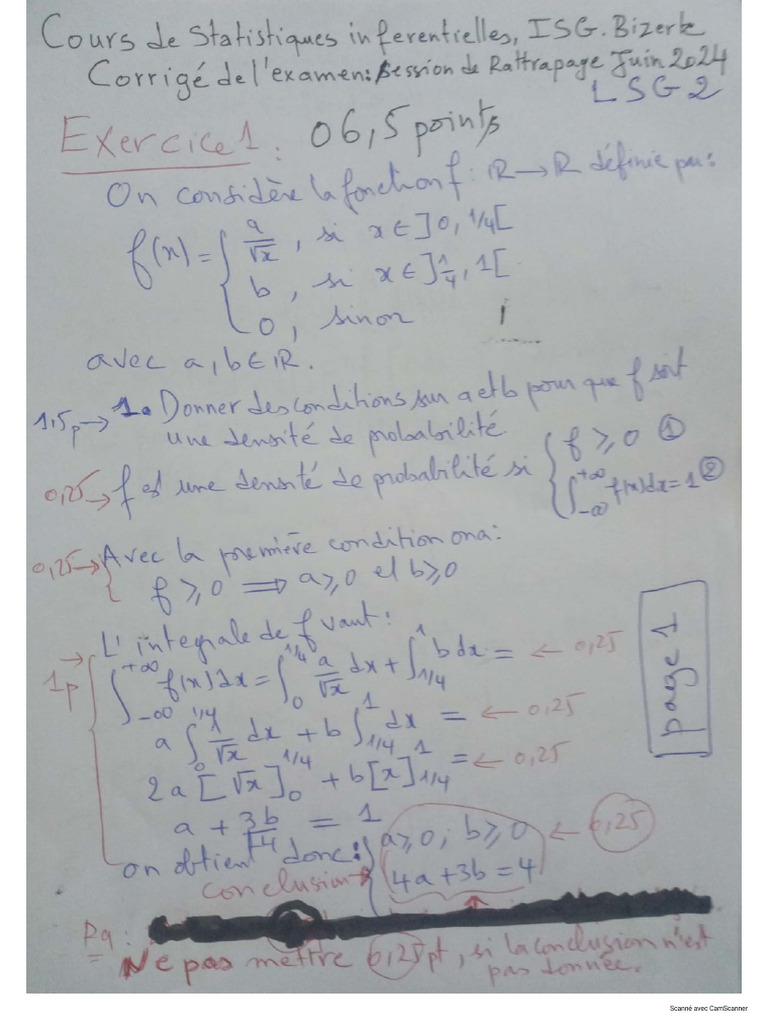 Cours de Statistiques inferentielles, ISG. Bizerte
Corrigé de l'examen: Session de Rattrapage Juin 2024
LSG2
Exercice 1: 06,5 points
On considère la fonction f: ℝ → ℝ définie par:
f(x) = { a/√x , si x ∈ ]0, 1/4[
b , si x ∈ ]1/4, 1[
0, sinon
avec a, b ∈ ℝ.
1,5p → 1. Donner des conditions sur a et b pour que f soit
une densité de probabilité
0,25 → f est une densité de probabilité si { f ≥ 0 ①
∫_{-∞}^{+∞} f(x)dx = 1 ②
0,25 → Avec la première condition on a:
f ≥ 0 ⟹ a ≥ 0 et b ≥ 0
L'integrale de f vaut:
1p → ∫_{-∞}^{+∞} f(x)dx = ∫_0^{1/4} a/√x dx + ∫_{1/4}^1 b dx = ← 0,25
a ∫_0^{1/4} 1/√x dx + b ∫_{1/4}^1 dx = ← 0,25
2a [√x]_0^{1/4} + b [x]_{1/4}^1 = ← 0,25
a + 3b/4 = 1
on obtient donc: { a ≥ 0; b ≥ 0 ← 0,25
conclusion → 4a + 3b = 4
page 1
Rq:
Ne pas mettre 0,25 pt, si la conclusion n'est
pas donnée.
Scanné avec CamScanner